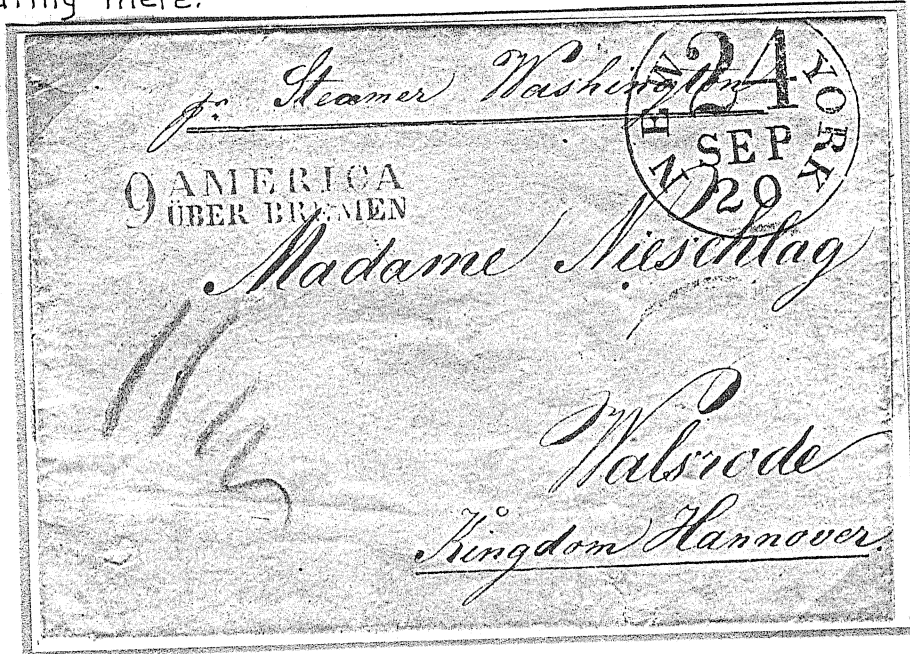 there.
pr. Steamer Washington
NEW YORK
24
SEP
20
9 AMERICA
ÜBER BREMEN
Madame Nieschlag
Walsrode
Kingdom Hannover.